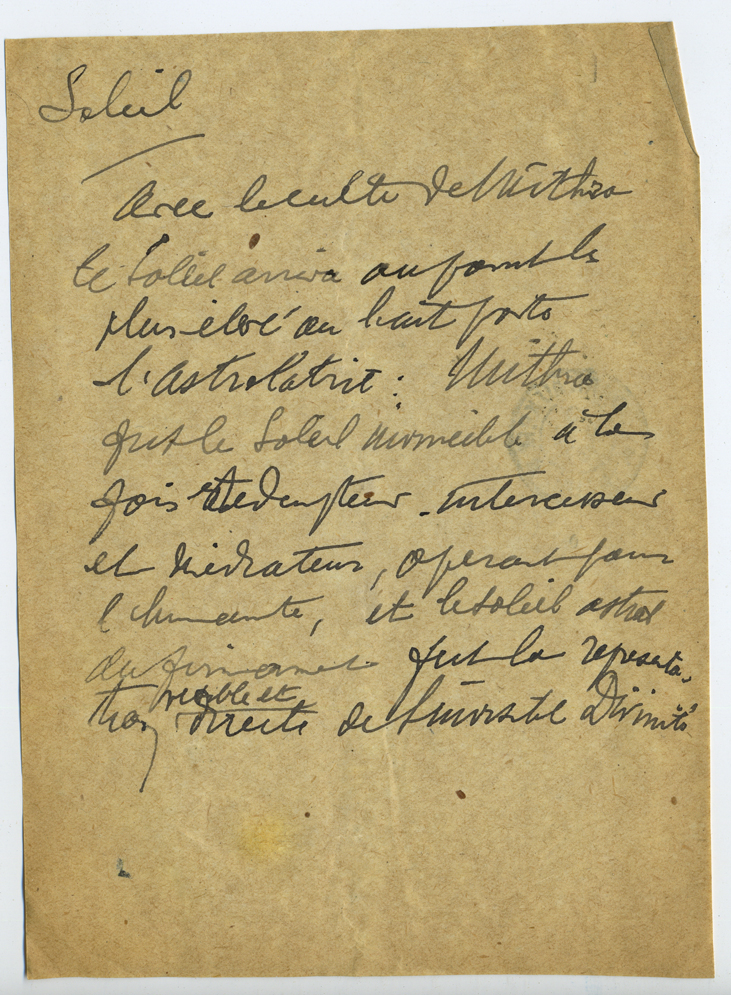 Soleil
Avec le culte de Mithra
le Soleil arriva au point le
plus élevé au
l'Astrolatrie : Mithra
fut le Soleil invincible à la
fois Rédempteur - intercesseur
et Médiateur, opérant pour
l'humanité, et le Soleil astral
du firmament fut la représenta-
visible et
tion directe de l'invisible Divinité